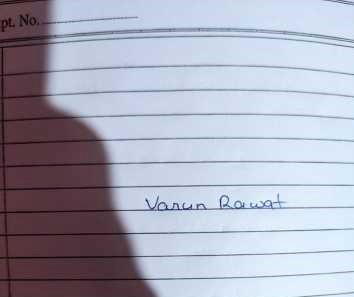 pt. No.
Varun Rawat